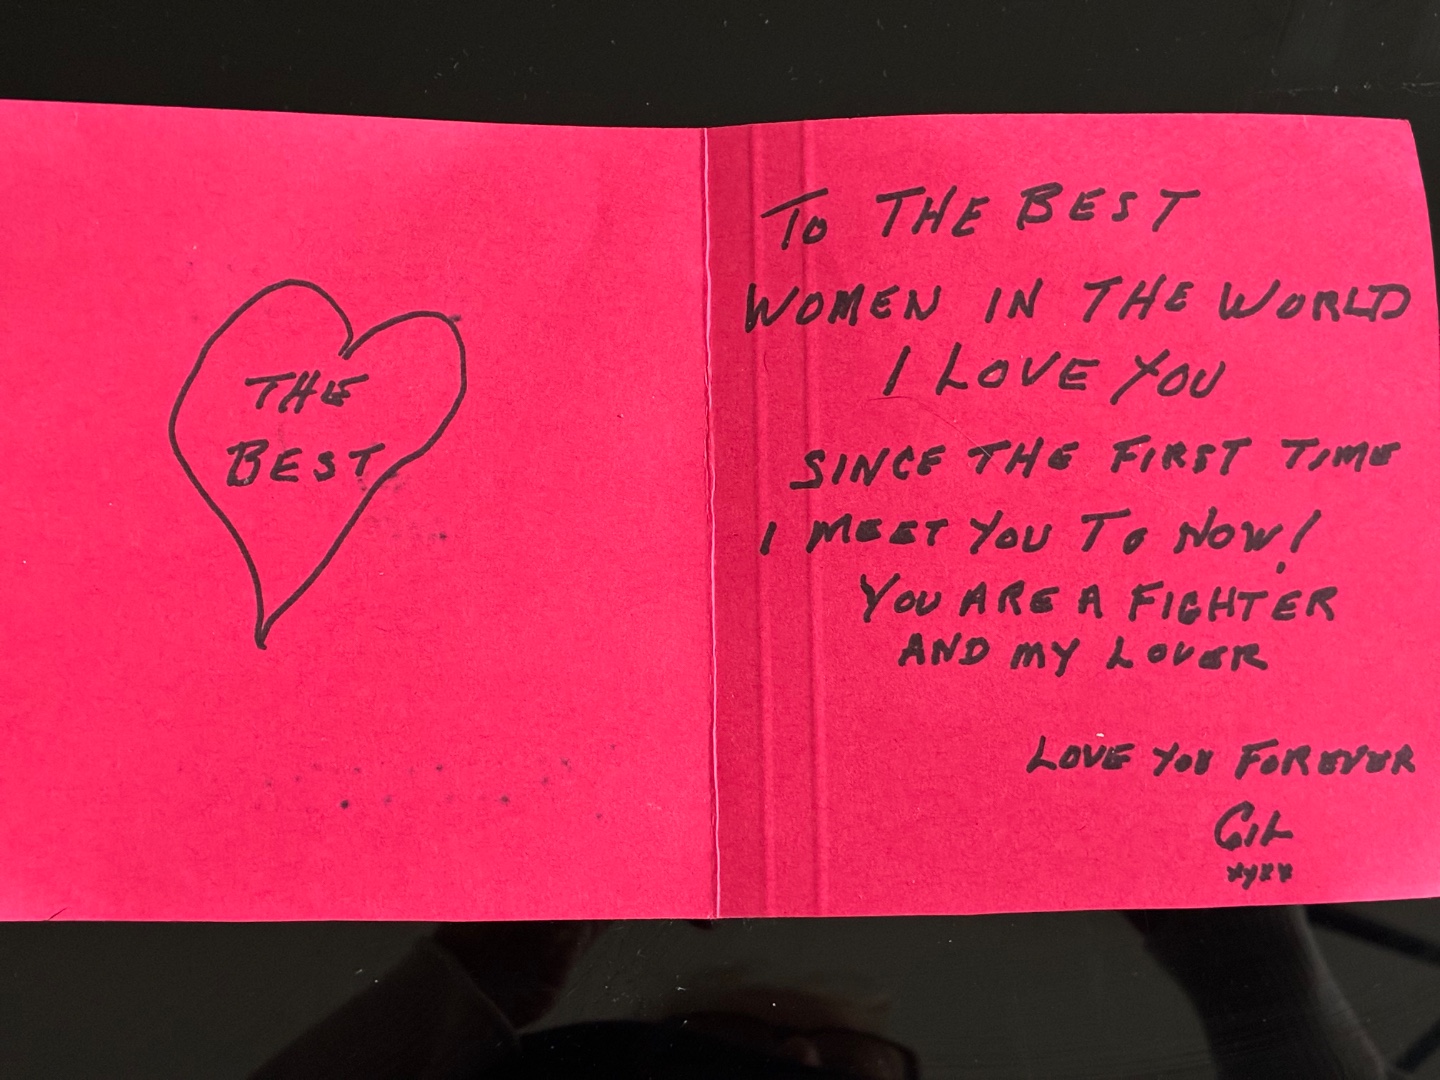 THE
BEST
TO THE BEST
WOMEN IN THE WORLD
I LOVE YOU
SINCE THE FIRST TIME
I MEET YOU TO NOW!
YOU ARE A FIGHTER
AND MY LOVER
LOVE YOU FOREVER
GIL
xxxx